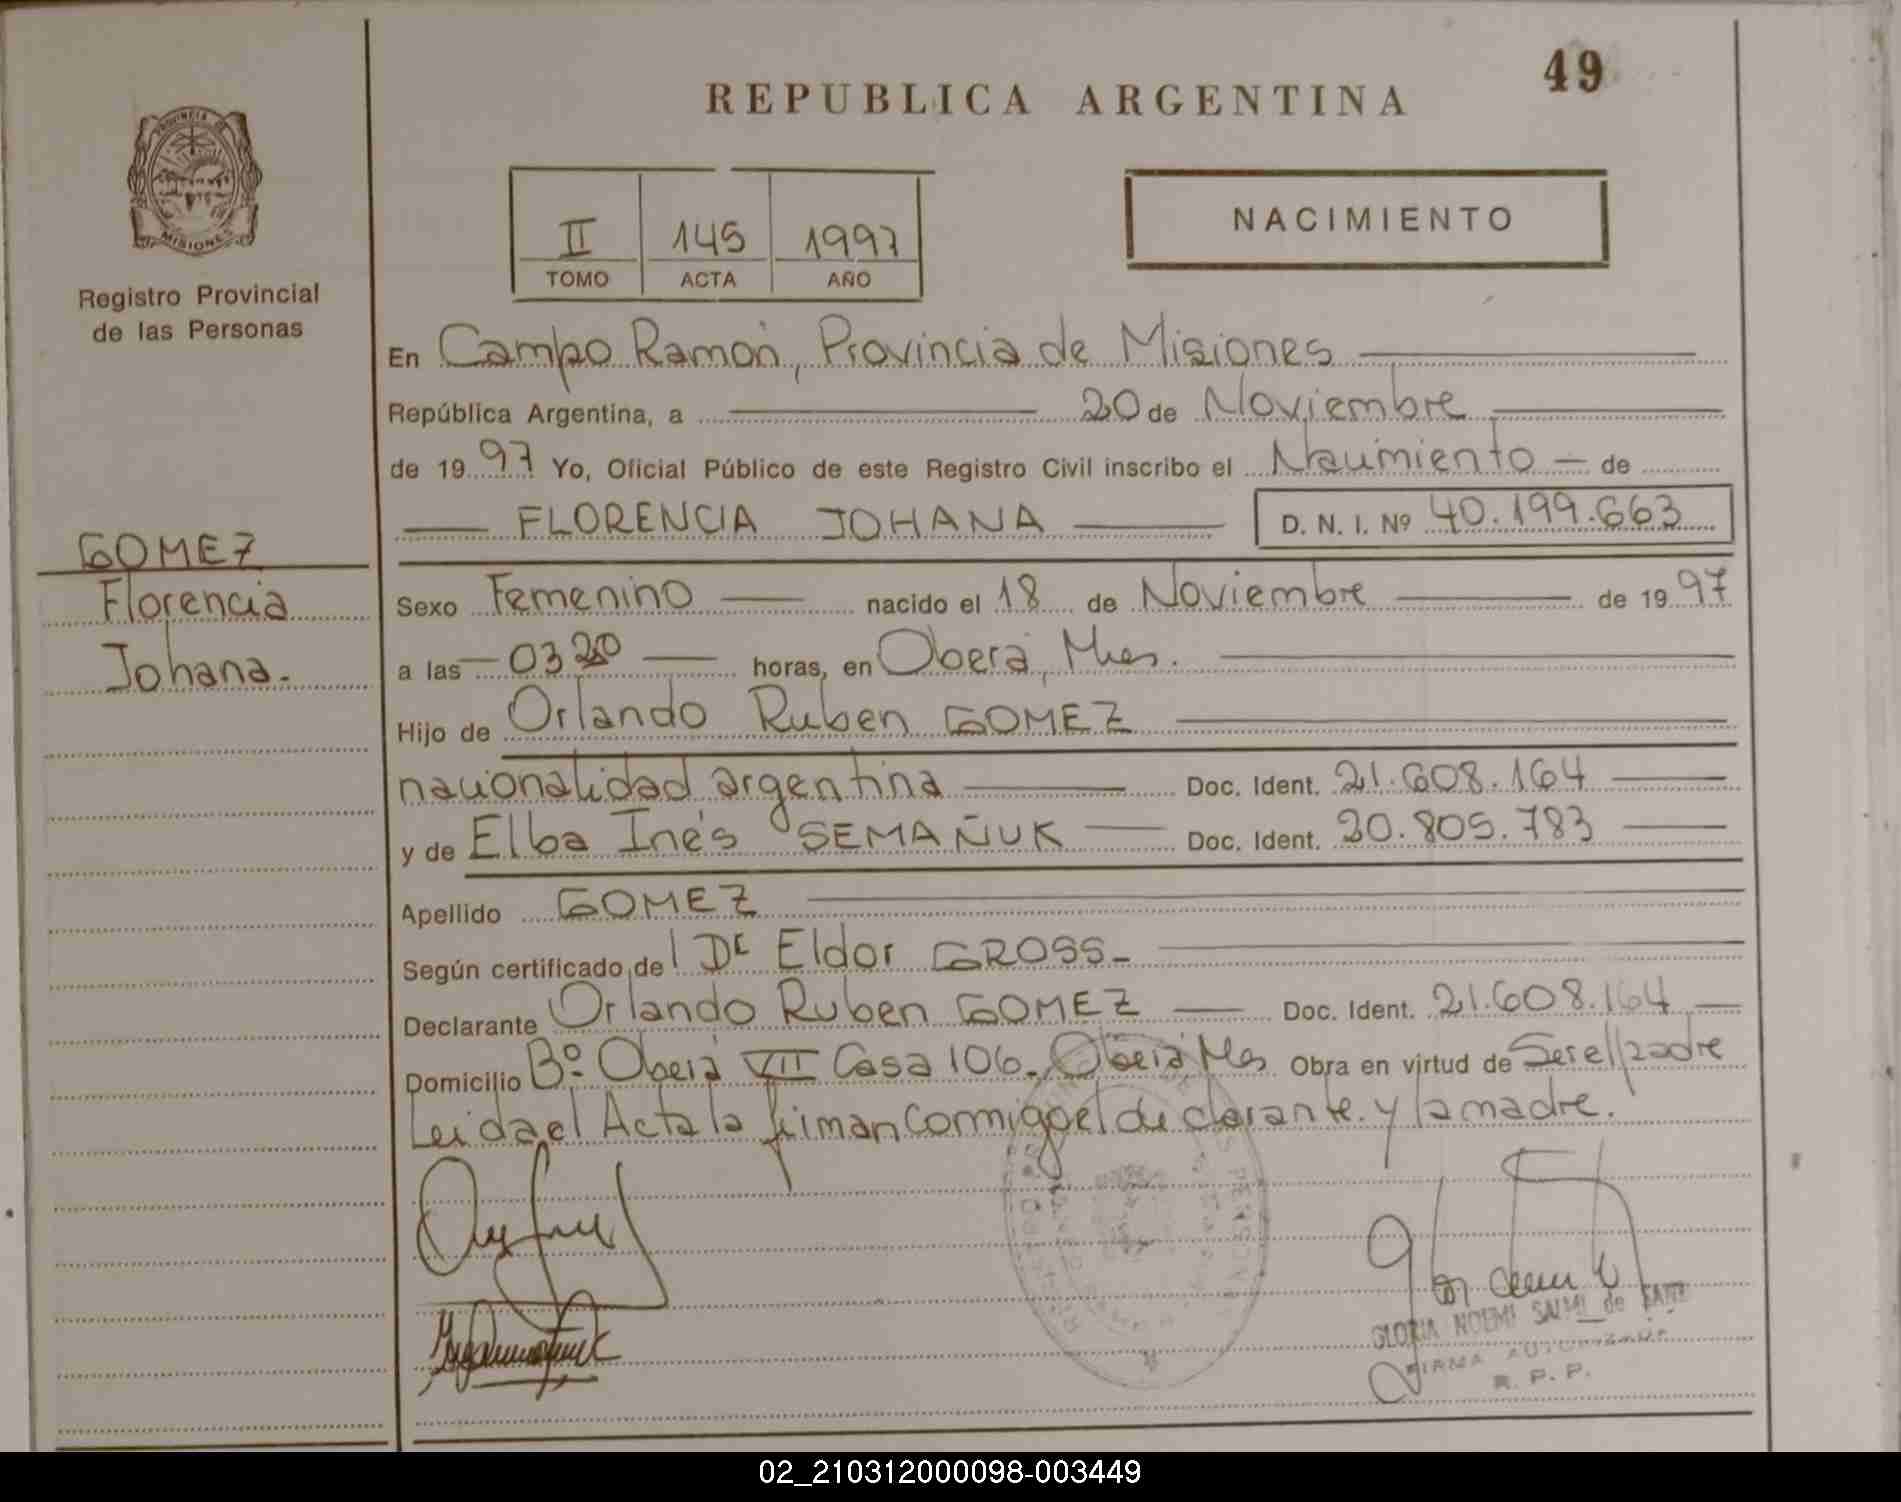 49
REPUBLICA ARGENTINA
PROVINCIA DE
MISIONES
Registro Provincial
de las Personas
II 145 1997
TOMO ACTA AÑO
NACIMIENTO
En Campo Ramón, Provincia de Misiones
República Argentina, a 20 de Noviembre
de 19 97 Yo, Oficial Público de este Registro Civil inscribo el Nacimiento de
FLORENCIA JOHANA D. N. I. Nº 40.199.663
GOMEZ
Florencia
Johana.
Sexo Femenino nacido el 18 de Noviembre de 19 97
a las 03 20 horas, en Oberá, Mnes.
Hijo de Orlando Ruben GOMEZ
nacionalidad argentina Doc. Ident. 21.608.164
y de Elba Inés SEMAÑUK Doc. Ident. 20.805.783
Apellido GOMEZ
Según certificado de Dr Eldor GROSS
Declarante Orlando Ruben GOMEZ Doc. Ident. 21.608.164
Domicilio Bº Oberá VII Casa 106. Oberá Mnes Obra en virtud de Ser el padre
Leida el Acta la firman conmigo el declarante y la madre.
GLORIA NOEMI de
FIRMA AUTORIZADA
R. P. P.
02_210312000098-003449